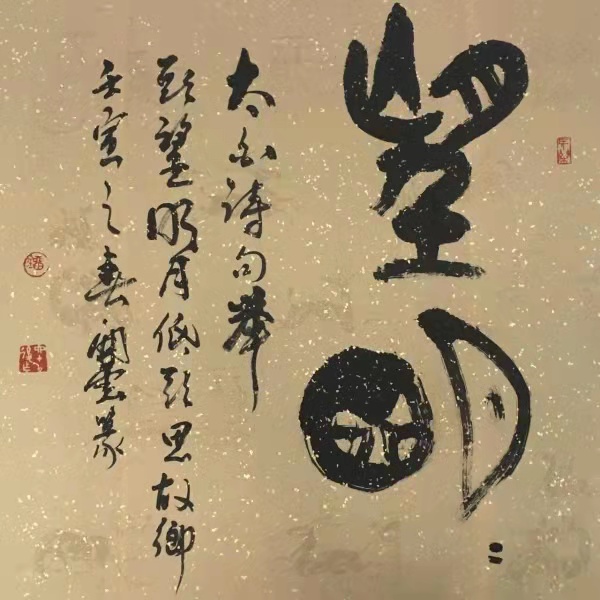 望明〻
太白詩句舉
頭望明月低頭思故鄉
壬寅之春篆